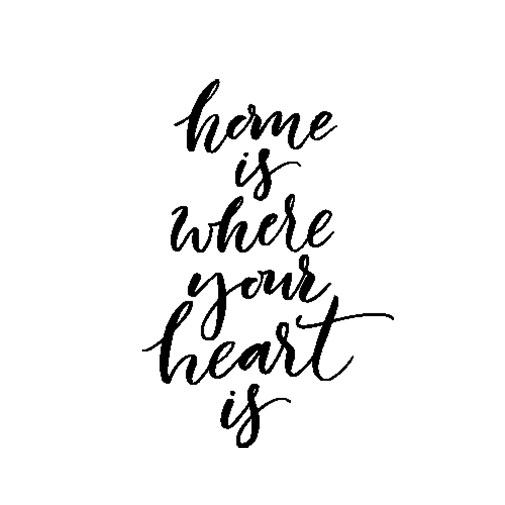 home
is
where
your
heart
is